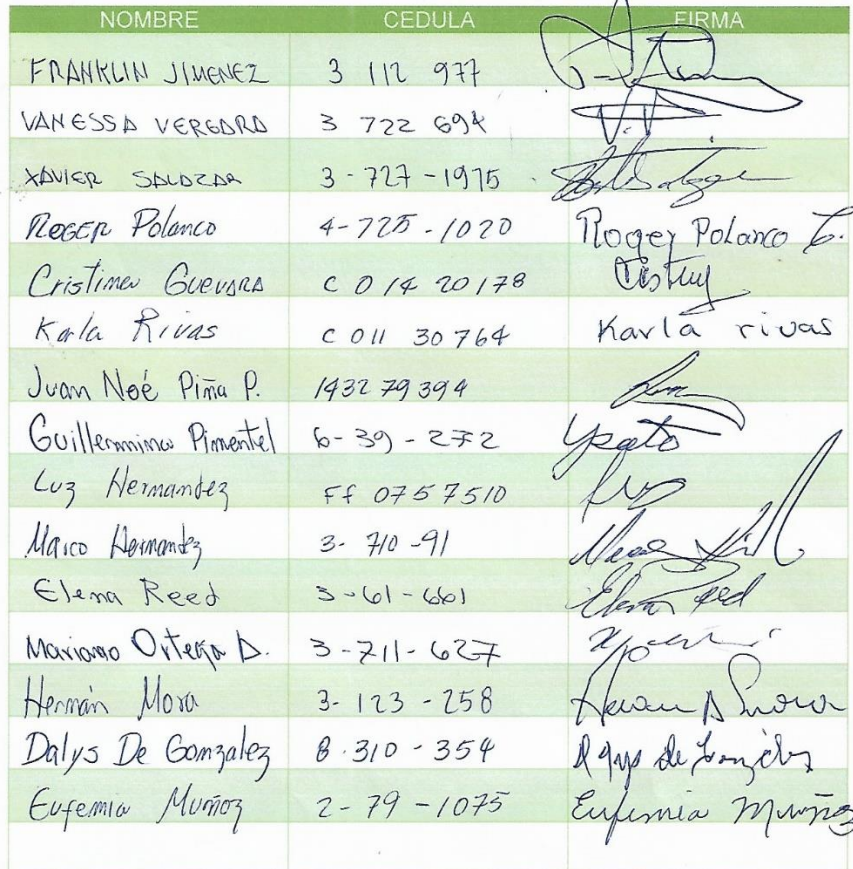 NOMBRE CEDULA FIRMA
FRANKLIN JIMENEZ 3 112 977
VANESSA VERGARA 3 722 694
XAVIER SALAZAR 3-727-1975
ROGER Polanco 4-725-1020 Roger Polanco
Cristina GUEVARA C 014 20178
Karla Rivas C 011 30764 Karla rivas
Juan Noé Piña P. 1432 79394
Guillermina Pimentel 6-39-272
Luz Hernandez Ff 0757510 Luz
Marco Hernandez 3-710-91
Elena Reed 3-61-661 Elena Reed
Mariano Ortega D. 3-711-627
Hernán Mora 3-123-258
Dalys De Gonzalez 8-310-354 Dalys de González
Eufemia Muñoz 2-79-1075 Eufemia Muñoz